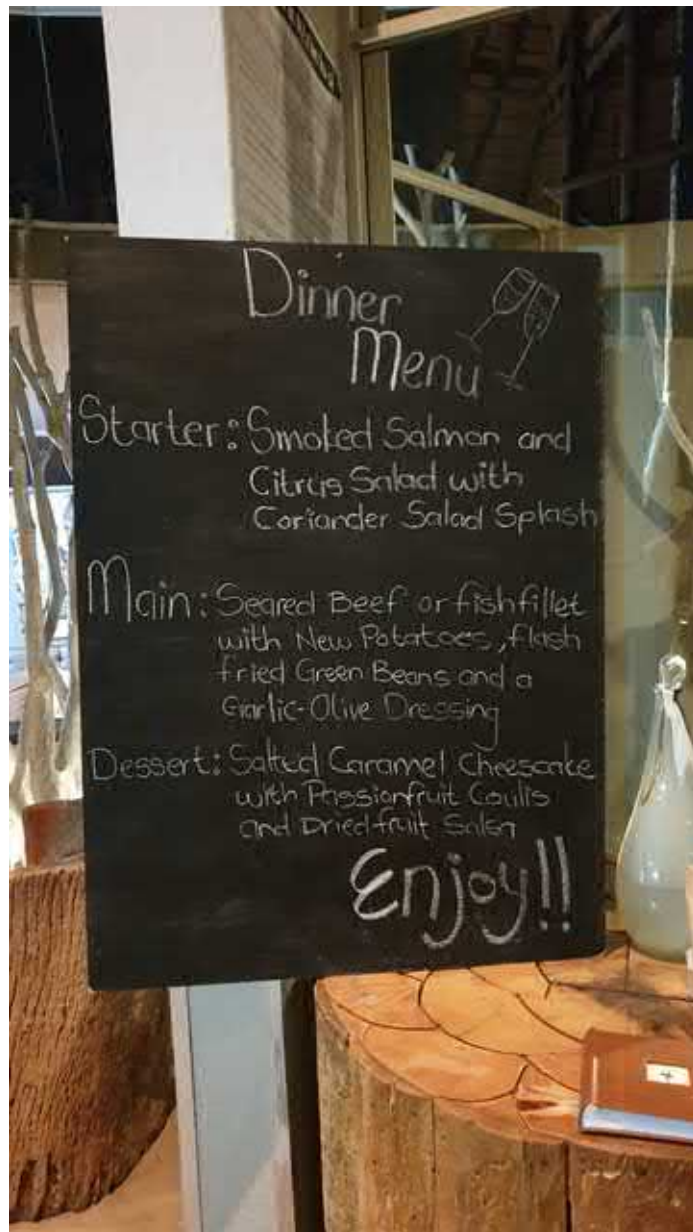 Dinner
Menu
Starter: Smoked Salmon and
Citrus Salad with
Coriander Salad Splash
Main: Seared Beef or fish fillet
with New Potatoes, flash
fried Green Beans and a
Garlic-Olive Dressing
Dessert: Salted Caramel Cheesecake
with Passionfruit Coulis
and Dried fruit Salsa
Enjoy!!
4